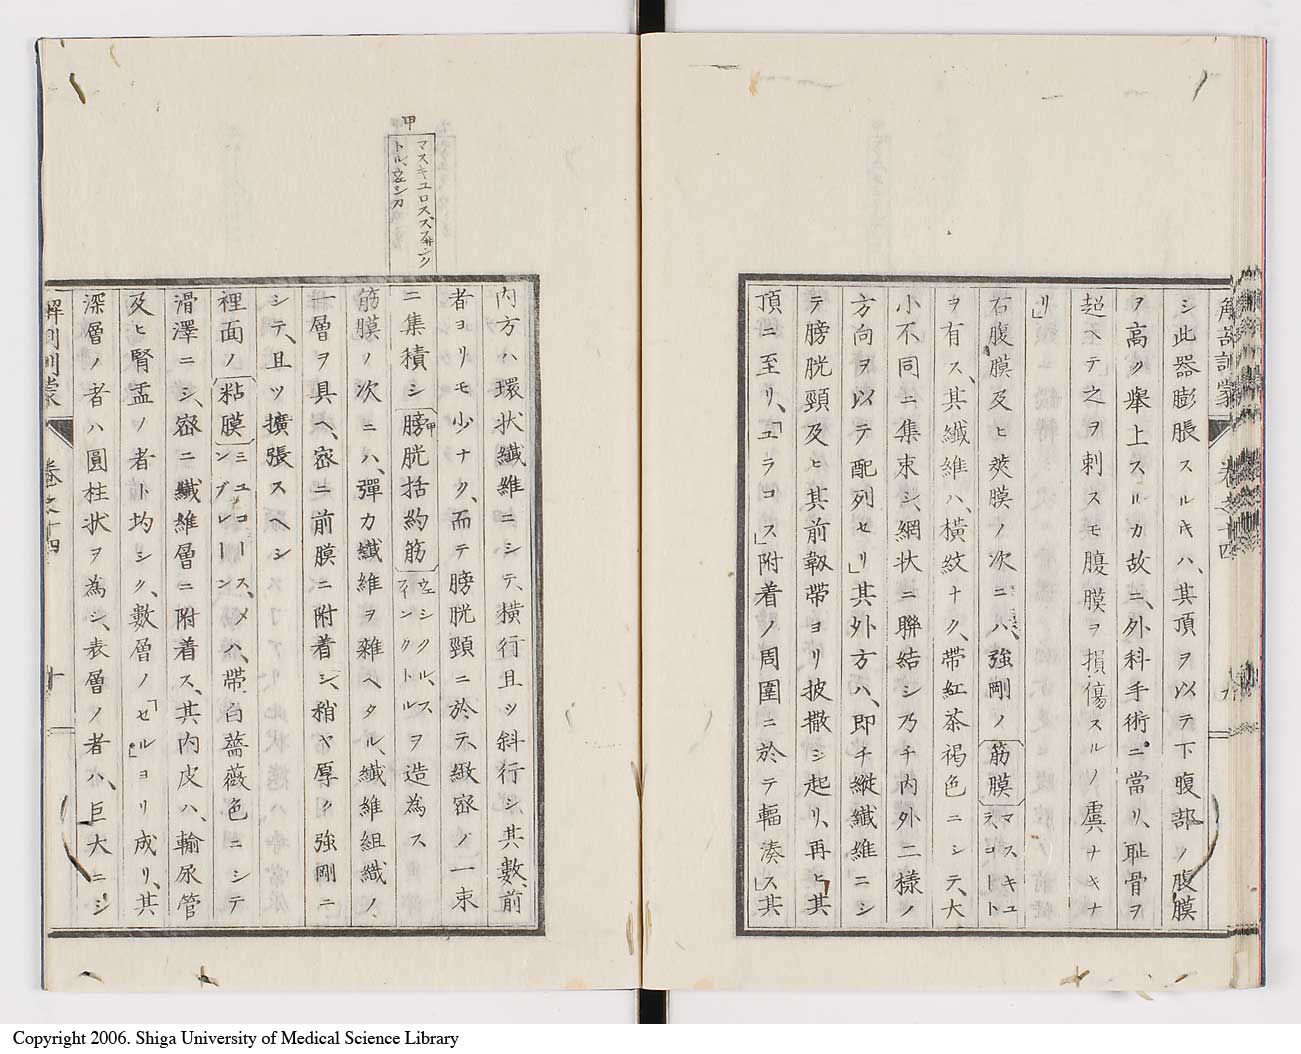 シ此器膨脹スルキハ、其頂ヲ以テ下腹部ノ腹膜
ヲ高ク舉上スルカ故ニ、外科手術ニ當リ、耻骨ヲ
超エテ之ヲ刺スモ腹膜ヲ損傷スルノ虞ナキナ
リ」
右腹膜及ヒ莢膜ノ次ニハ、強剛ノ筋膜マスキユラコート
ヲ有ス、其纖維ハ、横紋ナク、帶紅茶褐色ニシテ、大
小不同ニ集束シ、網状ニ聯結シ乃チ内外二樣ノ
方向ヲ以テ配列セリ」其外方ハ、即チ縱纖維ニシ
テ膀胱頸及ヒ其前靱帶ヨリ披撒シ起リ、再ヒ其
頂ニ至リ、「ユラコス」附着ノ周圍ニ於テ輻湊ス」其
解剖訓蒙
卷之十四
九
甲
マスキユロスズフ井ンク
トル、ウエシカ
内方ハ環状纖維ニシテ、横行且ツ斜行シ、其數、前
者ヨリモ少ナク、而テ膀胱頸ニ於テ、緻密ノ一束
ニ集積シ膀甲胱括約筋ウエシクル、スフインクトルヲ造為ス
筋膜ノ次ニハ、彈力纖維ヲ雜ヘタル、纖維組織ノ
一層ヲ具ヘ、密ニ前膜ニ附着シ、稍ヤ厚ク強剛ニ
シテ、且ツ擴張スヘシ
裡面ノ粘膜ミユコース、メンブレーンハ、帶白薔薇色ニシテ
滑澤ニシ、密ニ纖維層ニ附着ス、其内皮ハ、輸尿管
及ヒ腎盂ノ者ト均シク、數層ノ「セル」ヨリ成リ、其
深層ノ者ハ圓柱状ヲ為シ、表層ノ者ハ、巨大ニシ
解剖訓蒙
卷之十四
十
Copyright 2006. Shiga University of Medical Science Library